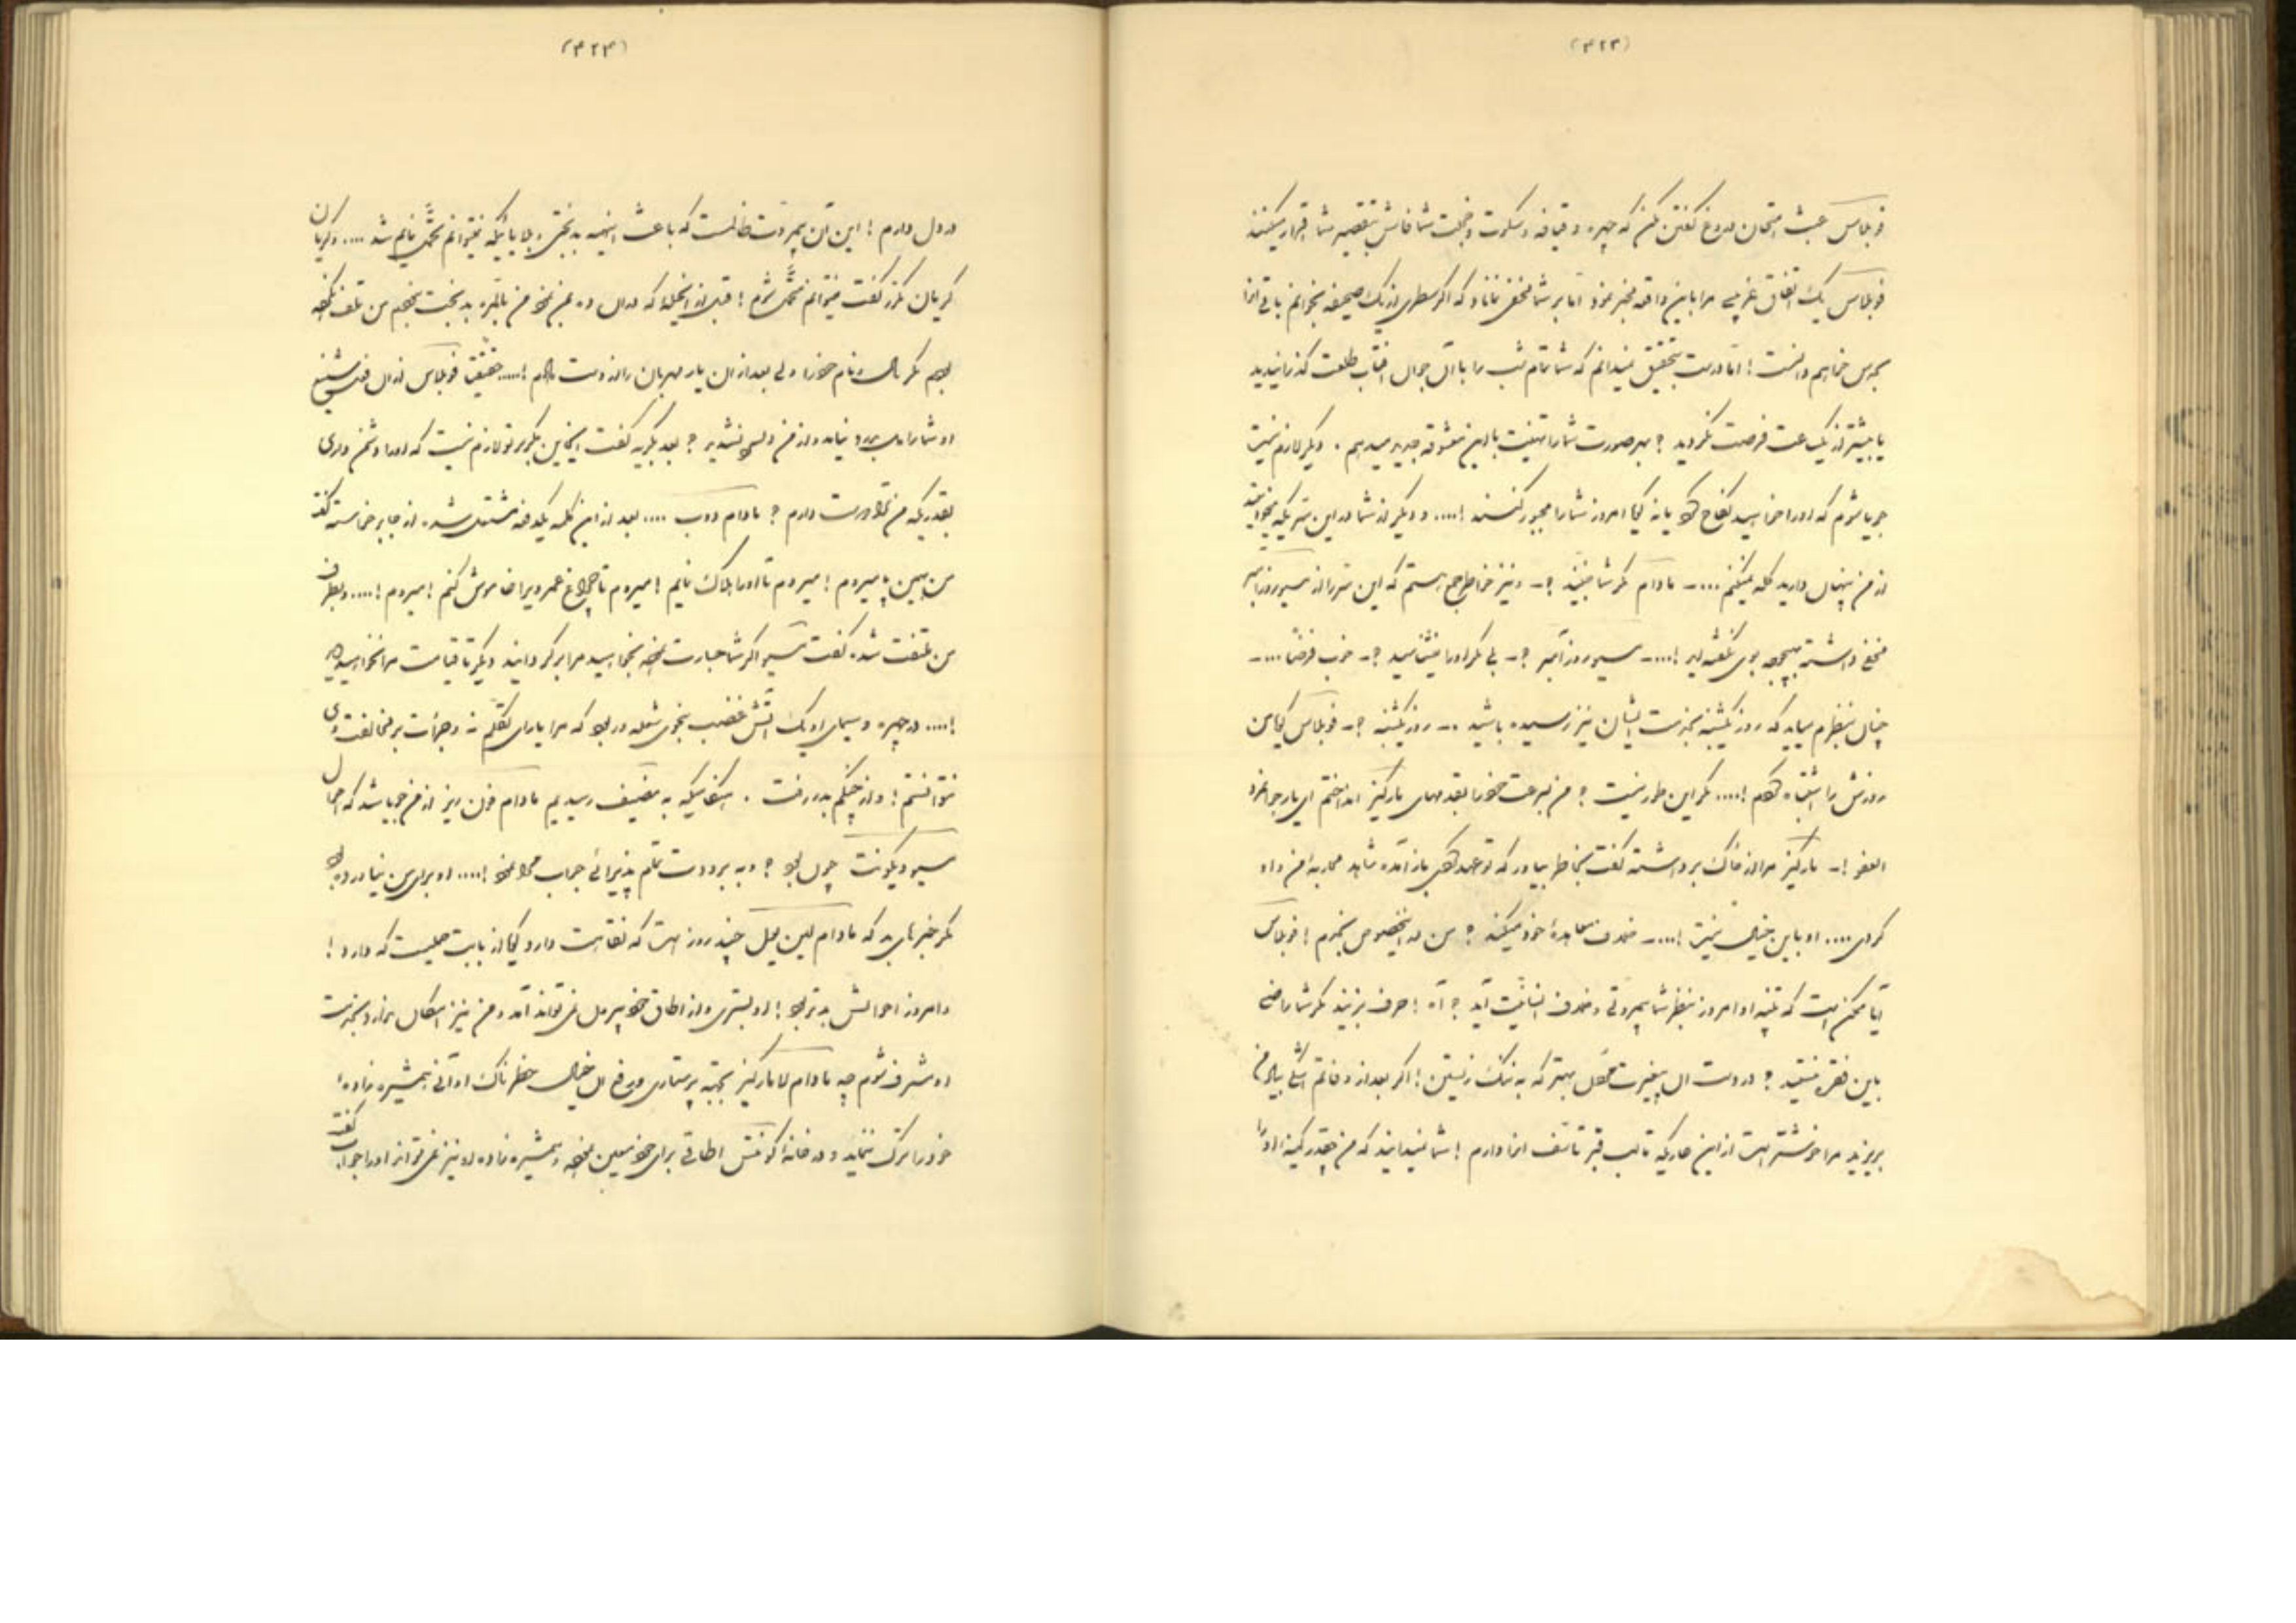 (۴۲۳)
فوبلاس عبث امتحان دروغ گفتن مکن که چهره و قیافه و سکوت و خجلت شما فاش بتقصیر شما اقرار میکنند
فوبلاس یک اتفاق غریبی مرا باین واقعه مخبر نمود اما بر شما مخفی نماناد که اگر سطری از یک صحیفه بخوانم باقی آنرا
بحدس خواهم دانست ! اما درست بتحقیق نمیدانم که شما تمام شب را با آن جمال آفتاب طلعت گذرانیدید
یا بیشتر از یک ساعت فرصت نکردید ؟ بهر صورت شما را تهنیت باین معشوقه جدید میدهم . دیگر لازم نیست
جویا شوم که او را خواسید نکاح کرد یا نه گویا امروز شما را مجبور کنند !.... و دیگر از شما در این سر یکه میخواستید
از من پنهان دارید گله نمیکنم ....- مادام مگر شما ؟- و نیز خاطر جمع هستم که این سر را از مسیو روزآمبر
مخفی داشته بهیچوجه بوی نگفته اید !....- مسیو روزآمبر ؟- بلی مگر او را نمیشناسید ؟- خوب فرضا ....-
چنان بنظرم میاید که روز یکشنبه بخدمت ایشان نیز رسیده باشید .- روز یکشنبه ؟- فوبلاس گویا من
روزش را اشتباه کردم !.... مگر این طور نیست ؟ من بسرعت خود را بقدمهای مارکیز انداختم ای یار جوانمرد
العفو !- مارکیز مرا از خاک برداشته گفت بخاطر بیاور که تو عهد کردی باز آمده شاید محاربه امن داد
کردی .... او باین خیال نیست !....- خلاف معاهدهٔ خود میکند ؟ من در اینخصوص بخدم ! فوبلاس
آیا ممکن است که تنبیه او امروز بنظر شما بیمروتی و خلاف انسانیت آید ؟ آه ! حرف بزنید مگر شما راضی
باین فقره نیستید ؟ در دست آن بیغیرت مقتول بهتر که به ننگ زیستن ! اگر بعد از وفاتم اشکی بیاد من
بریزید مرا خوشتر است از این حالیکه تا لب قبر تأسف آنرا دارم ! شما نمیدانید که من چقدر کینهٔ او را
(۴۲۴)
در دل دارم ! این آن بیمروت ظالمست که باعث اینهمه بدبختی و بلایائیکه نمیتوانم متحمل آنهم شد .... و گریان
گریان مکرر گفت نمیتوانم متحمل شوم ! قبل از اینجمله که در آن ده بمن نمود من بالمره بدبخت بخودم من تلف نکرده
بودم مگر مال و نام خود را ولی بعد از آن یار مهربان را از دست دادم !..... حقیقتاً فوبلاس از آن فعل شنیع
او شما را مادر بدرد نیامد و از من دلسرد نشدید ؟ بعد بگریه گفت اینچنین مگر بر تو لازم نیست که او را دشمن داری
بقدریکه من ترا دوست دارم ؟ مادام دوب .... بعد از این کلمه یکدفعه مشتعل شده از جا برخاسته گفت
من همین پا میروم ! میروم تا او را هلاک نمایم ! میروم تا چراغ عمر ویرا خاموش کنم ! میروم !.... و بطرف
من ملتفت شده گفت مسیو اگر شما جسارت نموده بخواسید مرا برگردانید دیگر تا قیامت مرا نخواهید دید
!.... در چهره و سیمای او یک آتش غضب بنحوی شعله ور بود که مرا یارای تکلم نه و جرأت بر مخالفت وی
نتوانستم ! و از چنگم بدر رفت . هنگامیکه به مغسیف رسیدیم مادام فون ریز از من جویا شد که احوال
مسیو دیکونت چون بود ؟ و به برودت تمام پذیرائی جواب مرا نمود !.... او برای من نیاورده بود
مگر خبر تازه بد که مادام لین یبل چند روز است که نقاهت دارد گویا از بابت حملیست که دارد !
و امروز احوالش بدتر بود ! او بستری و از اطاق خود بیرون نمی تواند آمد و من نیز امکان ندارد بخدمت
او مشرف شوم چه مادام لامارکیز بجهته پرستاری و دفع آن خیال خطرناک او آنی همشیره زادهٔ
خود را ترک ننماید و در خانهٔ کونتس اطاقی برای خود معین نموده و همشیره زادهٔ او نیز نمی تواند او را جواب گفت